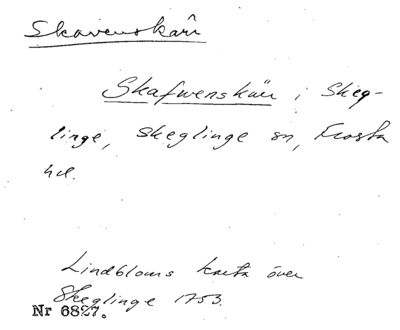 Skavenskärr
Skafwenskärr i Skeg-
linge, Skeglinge sn, Frosta
hd.
Lindbloms karta över
Skeglinge 1753.
Nr 6827.